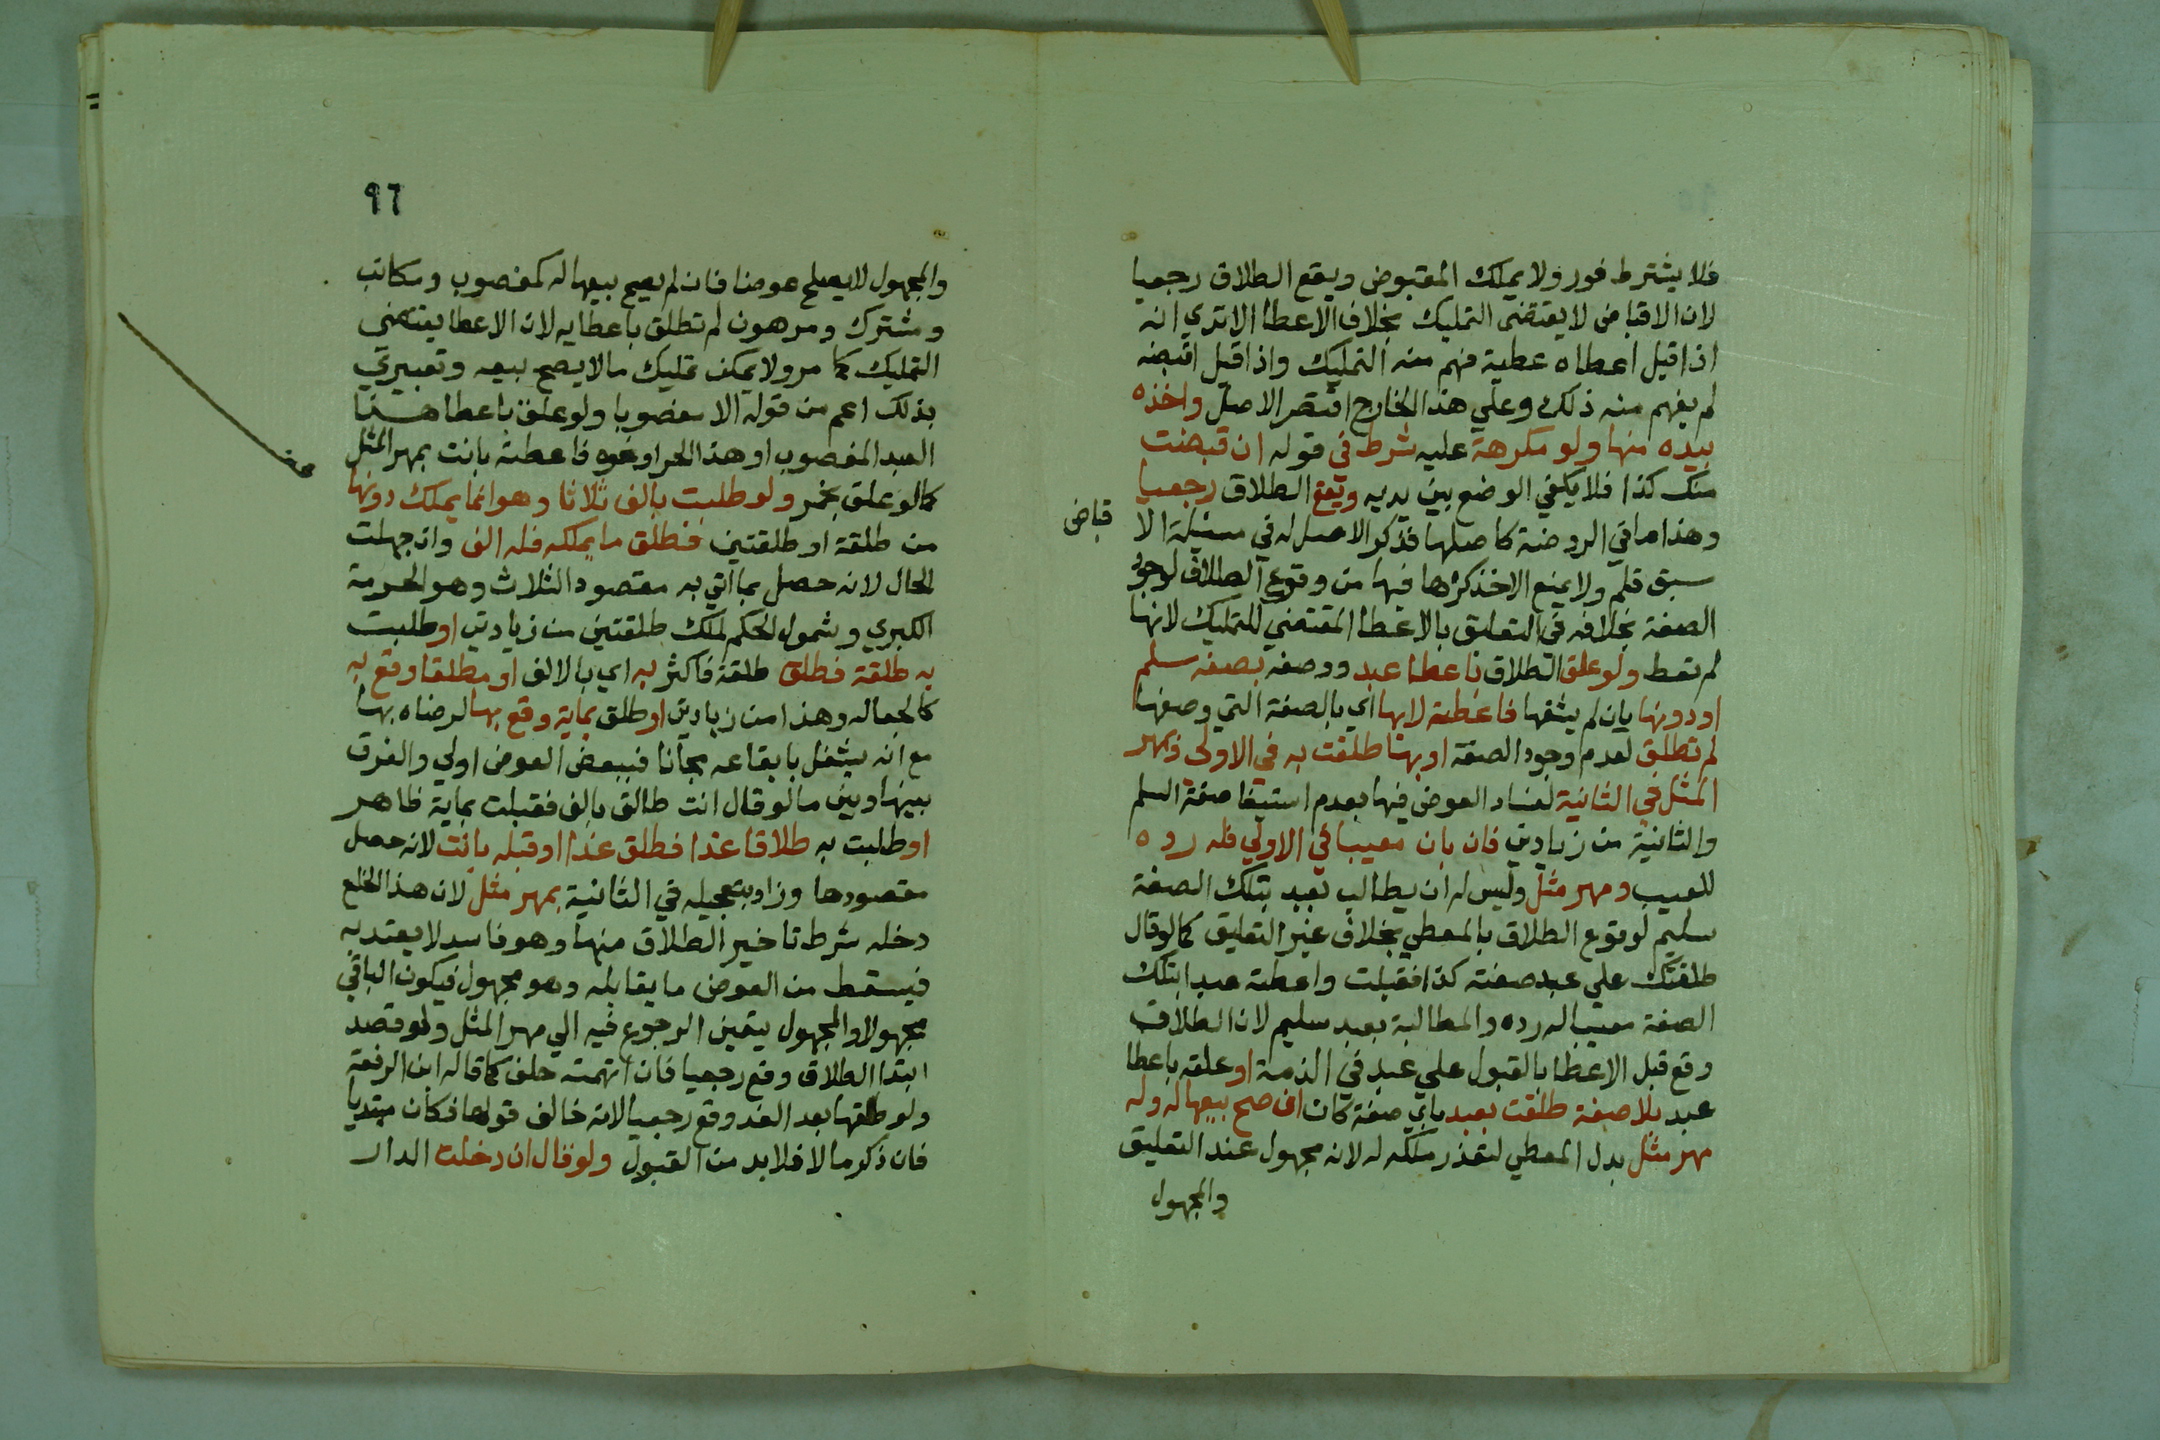 فلا يشترط فور ولا يملك المقبوض ويقع الطلاق رجعيا
لان الاقباض لا يقتضي التمليك بخلاف الاعطا الا تري انه
اذا قيل اعطاه عطية فهم منه التمليك واذا قيل اقبضه
لم يفهم منه ذلك وعلي هذا الخارج اقتصر الاصل واخذه
بيده منها ولو مكرهة عليه شرط في قوله ان قبضت
منك كذا فلا يكفي الوضع بين يديه ويقع الطلاق رجعيا
وهذا ما في الروضة كاصلها فذكر الاصل له في مسئلة الا
قباض
سبق قلم ولا يمنع الاخذ كرها فيها من وقوع الطلاق لوجود
الصفة بخلافه في التعليق بالاعطا المقتضي للتمليك لانها
لم تعط ولو علق الطلاق باعطا عبد ووصفه بصفة سلم
او دونها بان لم يشقها فاعطته لا بها اي بالصفة التي وصفها
لم تطلق لعدم وجود الصفة او بها طلقت به في الاولى وبمهر
المثل في الثانية لفساد العوض فيها بعدم استيفا صفة السلم
والثانية من زيادتي فان بان معيبا في الاولي فله رده
للعيب ومهر مثل وليس له ان يطالب بعبد بتلك الصفة
سليم لوقوع الطلاق بالمعطي بخلاف غير التعليق كما لو قال
طلقتك علي عبد صفته كذا فقبلت واعطته عبدا بتلك
الصفة معيبا له رده والمطالبة بعبد سليم لان الطلاق
وقع قبل الاعطا بالقبول علي عبد في الذمة او علقه باعطا
عبد بلا صفة طلقت بعبد باي صفة كان ان صح بيعها له وله
مهر مثل بدل المعطي لتعذر ملكه له لانه مجهول عند التعليق
والمجهول
٩٦
والمجهول لا يصلح عوضا فان لم يصح بيعها له كمغصوب ومكاتب
ومشترك ومرهون لم تطلق باعطايه لان الاعطا يقتضي
التمليك كما مر ولا يمكن تمليك ما لا يصح بيعه وتعبيري
بذلك اعم من قوله الا مغصوبا ولو علق باعطا هذا
العبد المغصوب او هذا الحر او نحوه فاعطته بانت بمهر المثل
كما لو علق بخمر ولو طلبت بالف ثلاثا وهو انما يملك دونها
من طلقة او طلقتين فطلق ما يملكه فله الف وان جهلت
الحال لانه حصل بما اتي به مقصود الثلاث وهو الحرمة
الكبري وشمول الحكم لملك طلقتين من زيادتي او طلبت
به طلقة فطلق طلقة فاكثر به اي بالالف او مطلقا وقع به
كالجعاله وهذا من زيادتي او طلق بماية وقع بها لرضاه بها
مع انه يستقل بايقاعه مجانا فببعض العوض اولي والفرق
بينها وبين ما لو قال انت طالق بالف فقبلت بماية ظاهر
او طلبت به طلاقا غدا فطلق غدا او قبله بانت لانه حصل
مقصودها وزاد بتعجيله في الثانية بمهر مثل لان هذا الخلع
دخله شرط تاخير الطلاق منها وهو فاسد لا يعتد به
فيسقط من العوض ما يقابله وهو مجهول فيكون الباقي
مجهولا والمجهول يتعين الرجوع فيه الي مهر المثل ولو قصد
ابتدا الطلاق وقع رجعيا فان اتهمته حلف كما قاله ابن الرفعة
ولو طلقها بعد الغد وقع رجعيا لانه خالف قولها فكان مبتديا
فان ذكر مالا فلا بد من القبول ولو قال ان دخلت الدار